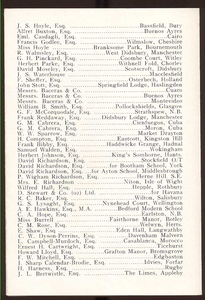 J. S. Hoyle, Esq. Bassfield, Bury
Alfred Buxton, Esq. Buenos Ayres
Emil. Cassfagli, Esq. Cairo
Francis Godlee, Esq. Wilmslow, Cheshire
Miss Hoyle Branksome Park, Bournemouth
R. Walmsley, Esq. West Didsbury, Manchester
G. H. Pinckard, Esq. Coombe Court, Witley
Herbert Parke, Esq. Withnell Fold, Chorley
David Mowat, Esq. Crosscroft, Didsbury
J. S. Waterhouse Macclesfield
F. Sheffer, Esq. Osterbeck, Holland
John Stott, Esq. Springfield Lodge, Haslingden
Messrs. Baceras & Co. Cuaro
Messrs. Baceras & Co. Buenos Ayres
Messrs. Baceras & Co. Montevideo
William B. Smith, Esq. Pollockshields, Glasgow
F. McCorquodale, Esq. Strathtay, N.B.
Frank Reddaway, Esq. Didsbury Lodge, Manchester
G. M. Cabrera, Esq. Cienfuegos, Cuba
G. M. Cabrera, Esq. Moron, Cuba
W. E. Sparrow, Esq. Market Drayton
R. Compton, Esq. Eastcott, Kingston Hill
Frank Bibby, Esq. Hardwicke Grange, Hadnal
Samuel Walden, Esq. Wokingham
Herbert Johnson, Esq. King's Somborne, Hants.
David Richardson, Esq. Stockfield O/T
David Richardson, Esq. for Bootham School, York
David Richardson, Esq. for Ayton School, Middlesbrough
P. Wigham Richardson, Esq. Herne Hill S.E.
Mrs. E. Richardson Niton, Isle of Wight
Wilfred Hall, Esq. Hepple, Rothbury
D. Stewart & Co. (o/r) Ltd. for Havana
R. C. Baker, Esq. Wilton, Salisbury
G. S. Lysaght, Esq. Nynehead Court, Wellington
A. E. Hawkins, Esq., M.A. Bedford Modern School
C. A. Hope, Esq. Earlston, N.B.
Miss Burrill Fairthorne Manor, Botley
C. M. Rose, Esq. Welwyn, Herts.
T. Shaw, Esq. Eden Hall, Langwathby
C. W. Dyson Perrins, Esq. Davenham Malvern
E. Campbell-Murdoch, Esq. Casablanca, Morocco
Ernest H. Cartwright, Esq. Ticehurst
Howard Lloyd, Esq. Grafton Manor, Bromsgrove
F. W. Mitchell, Esq. Edgbaston
J. Sharp Callender-Brodie, Esq. Idvies, Forfar
H. Harness, Esq. Rugby
J. L. Bretwistle, Esq. The Limes, Appleby